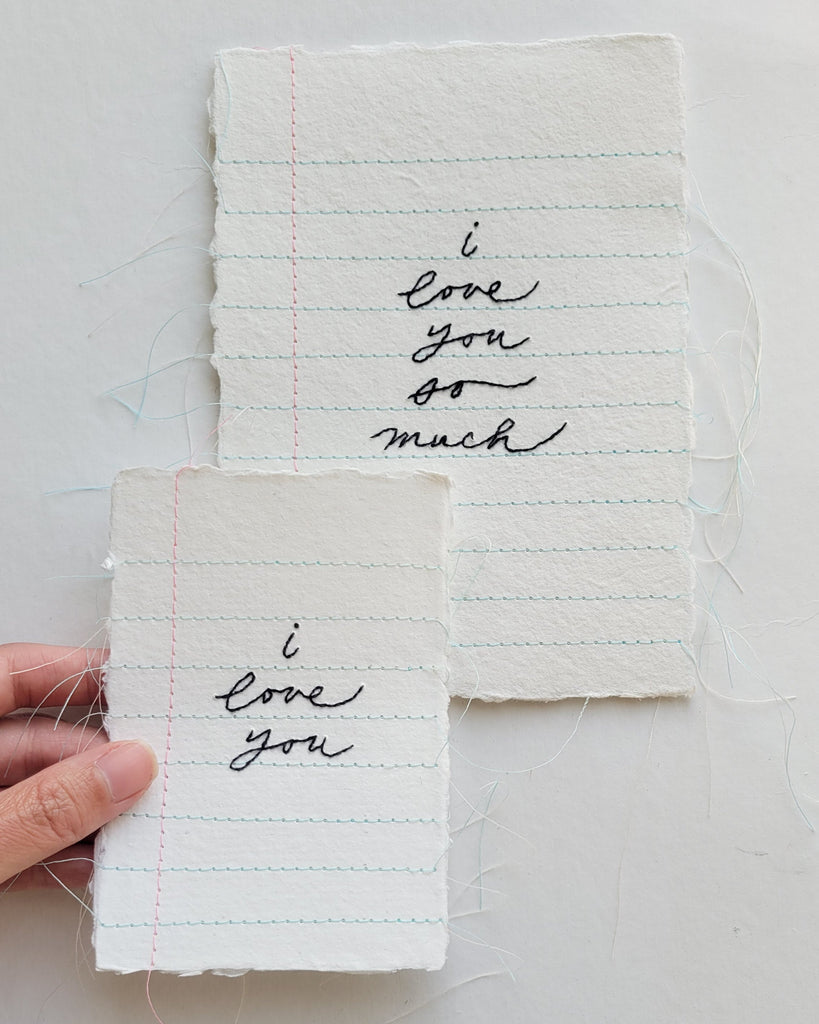 i
love
you
so
much
i
love
you